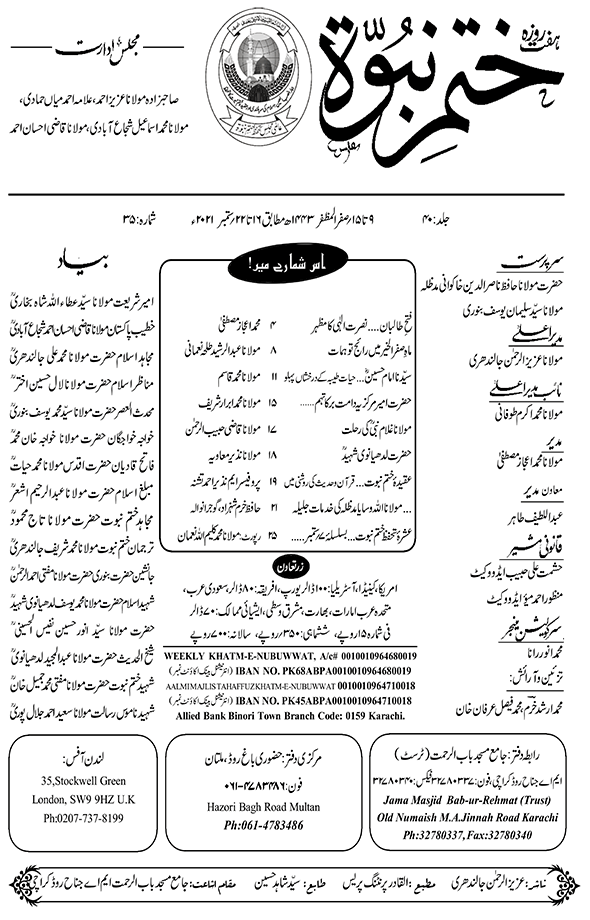 ہفت روزہ
ختم نبوۃ
مجلس ادارت
صاحبزادہ مولانا عزیز احمد، علامہ احمد میاں حمادی،
مولانا محمد اسماعیل شجاع آبادی، مولانا قاضی احسان احمد
جلد: ۴۰
۹ تا ۱۵ صفر المظفر ۱۴۴۳ھ مطابق ۱۶ تا ۲۲ ستمبر ۲۰۲۱ء
شمارہ: ۳۵
سرپرست
حضرت مولانا حافظ ناصر الدین خاکوانی مدظلہ
مولانا سیّد سلیمان یوسف بنوری
مدیر اعلےٰ
مولانا عزیز الرحمٰن جالندھری
نائب مدیر اعلےٰ
مولانا محمد اکرم طوفانی
مدیر
مولانا محمد اعجاز مصطفیٰ
معاون مدیر
عبداللطیف طاہر
قانونی مشیر
حشمت علی حبیب ایڈووکیٹ
منظور احمد میؤ ایڈووکیٹ
سرکولیشن منیجر
محمد انور رانا
تزئین و آرائش:
محمد ارشد خرم، محمد فیصل عرفان خان
اس شمارے میں!
فتح طالبان.... نصرت الٰہی کا مظہر ۴ محمد اعجاز مصطفیٰ
ماہ صفر الخیر میں رائج توہمات ۸ مولانا عبدالرشید طلحہ نعمانی
سیّدنا امام حسینؓ... حیات طیبہ کے درخشاں پہلو ۱۱ مولانا محمد قاسم
حضرت امیر مرکزیہ دامت برکاتہم.... ۱۵ مولانا محمد ابرار شریف
مولانا غلام نبیؒ کی رحلت ۱۷ مولانا قاضی حبیب الرحمٰن
حضرت لدھیانوی شہیدؒ ۱۸ مولانا نذیر معاویہ
عقیدۂ ختم نبوت... قرآن و حدیث کی روشنی میں ۱۹ پروفیسر ایم نذیر احمد تشنہ
...مولانا اللہ وسایا مدظلہ کی خدمات جلیلہ ۲۱ حافظ خرم شہزاد، گوجرانوالہ
عشرۂ تحفظ ختم نبوت... بسلسلہ ۷ ستمبر... ۲۵ رپورٹ: مولانا محمد کلیم اللہ نعمان
زر تعاون
امریکا، کینیڈا، آسٹریلیا: ۱۰۰ ڈالر یورپ، افریقہ: ۸۰ ڈالر، سعودی عرب،
متحدہ عرب امارات، بھارت، مشرق وسطی، ایشیائی ممالک: ۷۰ ڈالر
فی شمارہ ۱۵ روپے، ششماہی: ۳۵۰ روپے، سالانہ: ۷۰۰ روپے
WEEKLY KHATM-E-NUBUWWAT, A/c# 0010010964680019
IBAN NO. PK68ABPA0010010964680019 (انٹرنیشنل بینک اکاؤنٹ نمبر)
AALMI MAJLIS TAHAFFUZ KHATM-E-NUBUWWAT 0010010964710018
IBAN NO. PK45ABPA0010010964710018 (انٹرنیشنل بینک اکاؤنٹ نمبر)
Allied Bank Binori Town Branch Code: 0159 Karachi.
بیاد
امیر شریعت مولانا سید عطاء اللہ شاہ بخاریؒ
خطیب پاکستان مولانا قاضی احسان احمد شجاع آبادیؒ
مجاہد اسلام حضرت مولانا محمد علی جالندھریؒ
مناظر اسلام حضرت مولانا لال حسین اخترؒ
محدث العصر حضرت مولانا سید محمد یوسف بنوریؒ
خواجہ خواجگان حضرت مولانا خواجہ خان محمدؒ
فاتح قادیان حضرت اقدس مولانا محمد حیاتؒ
مبلغ اسلام حضرت مولانا عبدالرحیم اشعرؒ
مجاہد ختم نبوت حضرت مولانا تاج محمودؒ
ترجمان ختم نبوت حضرت مولانا محمد شریف جالندھریؒ
جانشین حضرت بنوری حضرت مولانا مفتی احمد الرحمنؒ
شہید اسلام حضرت مولانا محمد یوسف لدھیانوی شہیدؒ
حضرت مولانا سید انور حسین نفیس الحسینیؒ
شیخ الحدیث حضرت مولانا عبدالمجید لدھیانویؒ
شہید ختم نبوت حضرت مولانا مفتی محمد جمیل خانؒ
شہید ناموس رسالت مولانا سعید احمد جلال پوریؒ
رابطہ دفتر: جامع مسجد باب الرحمت (ٹرسٹ)
ایم اے جناح روڈ کراچی، فون: ۳۲۷۸۰۳۳۷ فیکس: ۳۲۷۸۰۳۴۰
Jama Masjid Bab-ur-Rehmat (Trust)
Old Numaish M.A.Jinnah Road Karachi
Ph:32780337, Fax:32780340
مرکزی دفتر: حضوری باغ روڈ، ملتان
فون: ۰۶۱-۴۷۸۳۴۸۶
Hazori Bagh Road Multan
Ph:061-4783486
لندن آفس:
35,Stockwell Green
London, SW9 9HZ U.K
Ph:0207-737-8199
ناشر: عزیز الرحمٰن جالندھری مطبع: القادر پرنٹنگ پریس طابع: سیّد شاہد حسین مقام اشاعت: جامع مسجد باب الرحمت ایم اے جناح روڈ کراچی